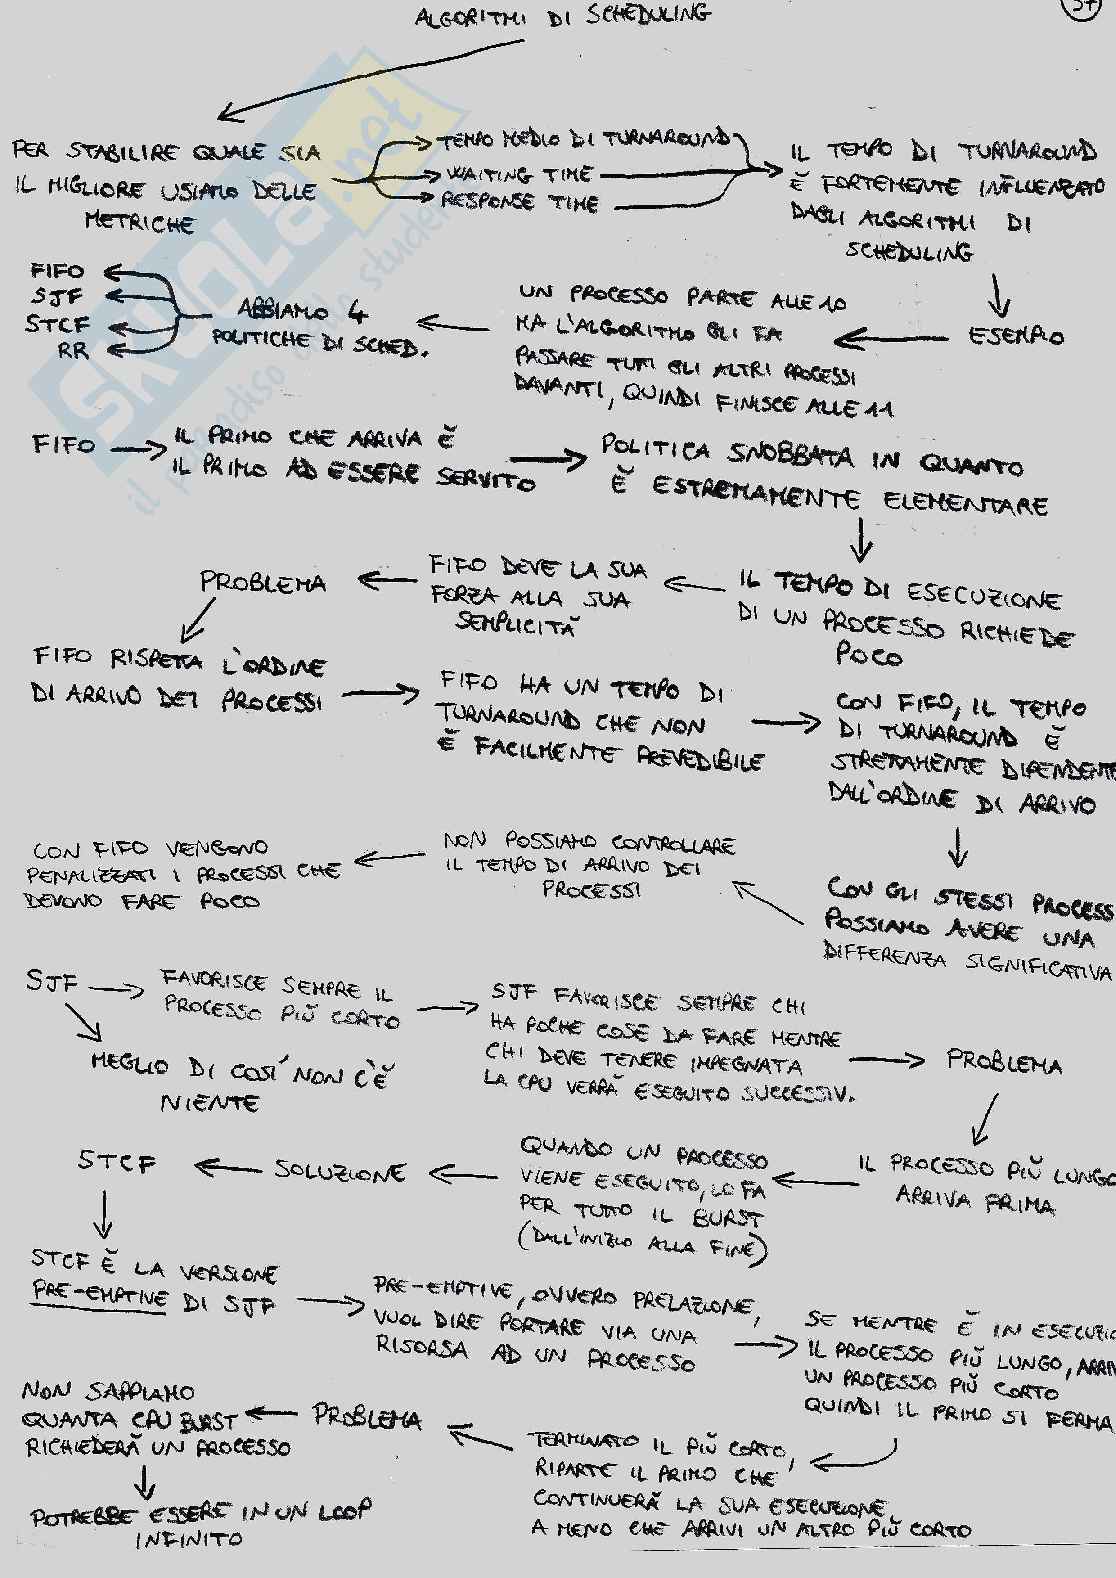 37
ALGORITMI DI SCHEDULING
PER STABILIRE QUALE SIA
IL MIGLIORE USIAMO DELLE
METRICHE
TEMPO MEDIO DI TURNAROUND
WAITING TIME
RESPONSE TIME
IL TEMPO DI TURNAROUND
È FORTEMENTE INFLUENZATO
DAGLI ALGORITMI DI
SCHEDULING
ESEMPIO
UN PROCESSO PARTE ALLE 10
MA L'ALGORITMO GLI FA
PASSARE TUTTI GLI ALTRI PROCESSI
DAVANTI, QUINDI FINISCE ALLE 11
ABBIAMO 4
POLITICHE DI SCHED.
FIFO
SJF
STCF
RR
FIFO
IL PRIMO CHE ARRIVA È
IL PRIMO AD ESSERE SERVITO
POLITICA SNOBBATA IN QUANTO
È ESTREMAMENTE ELEMENTARE
IL TEMPO DI ESECUZIONE
DI UN PROCESSO RICHIEDE
POCO
FIFO DEVE LA SUA
FORZA ALLA SUA
SEMPLICITÀ
PROBLEMA
FIFO RISPETTA L'ORDINE
DI ARRIVO DEI PROCESSI
FIFO HA UN TEMPO DI
TURNAROUND CHE NON
È FACILMENTE PREVEDIBILE
CON FIFO, IL TEMPO
DI TURNAROUND È
STRETTAMENTE DIPENDENTE
DALL'ORDINE DI ARRIVO
CON GLI STESSI PROCESS
POSSIAMO AVERE UNA
DIFFERENZA SIGNIFICATIVA
NON POSSIAMO CONTROLLARE
IL TEMPO DI ARRIVO DEI
PROCESSI
CON FIFO VENGONO
PENALIZZATI I PROCESSI CHE
DEVONO FARE POCO
SJF
FAVORISCE SEMPRE IL
PROCESSO PIÙ CORTO
MEGLIO DI COSÌ NON C'È
NIENTE
SJF FAVORISCE SEMPRE CHI
HA POCHE COSE DA FARE MENTRE
CHI DEVE TENERE IMPEGNATA
LA CPU VERRÀ ESEGUITO SUCCESSIV.
PROBLEMA
IL PROCESSO PIÙ LUNGO
ARRIVA PRIMA
QUANDO UN PROCESSO
VIENE ESEGUITO, LO FA
PER TUTTO IL BURST
(DALL'INIZIO ALLA FINE)
SOLUZIONE
STCF
STCF È LA VERSIONE
PRE-EMPTIVE DI SJF
PRE-EMPTIVE, OVVERO PRELAZIONE,
VUOL DIRE PORTARE VIA UNA
RISORSA AD UN PROCESSO
SE MENTRE È IN ESECUZIO
IL PROCESSO PIÙ LUNGO, ARRIV
UN PROCESSO PIÙ CORTO
QUINDI IL PRIMO SI FERMA
TERMINATO IL PIÙ CORTO,
RIPARTE IL PRIMO CHE
CONTINUERÀ LA SUA ESECUZIONE
A MENO CHE ARRIVI UN ALTRO PIÙ CORTO
PROBLEMA
NON SAPPIAMO
QUANTA CPU BURST
RICHIEDERÀ UN PROCESSO
POTREBBE ESSERE IN UN LOOP
INFINITO
SKUOLA.net